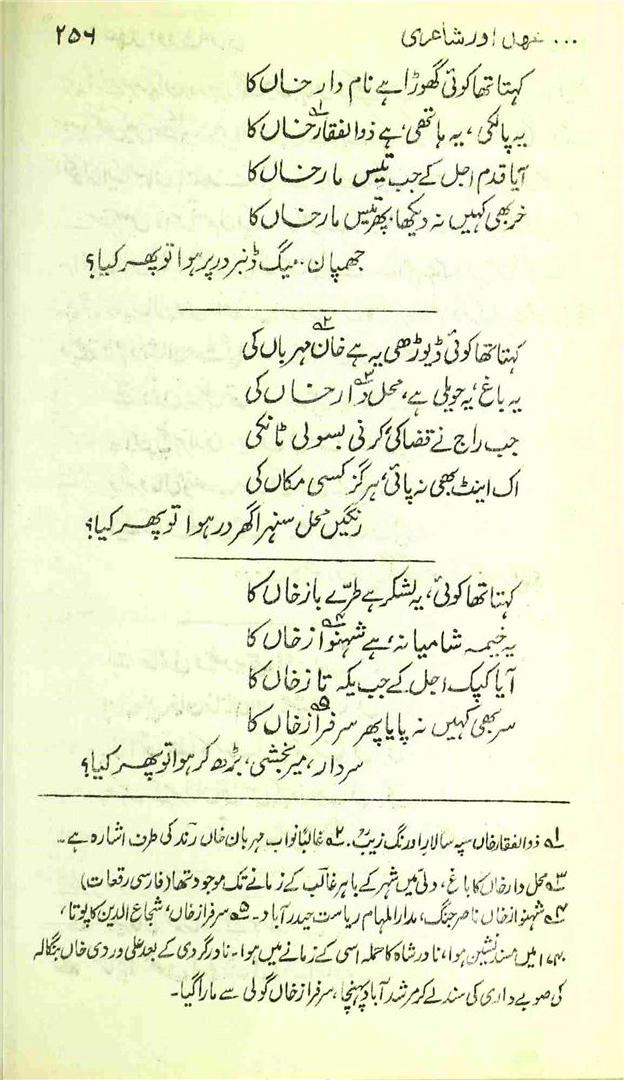 ... نھاں اور شاعری ۲۵۶
کہتا تھا کوئی گھوڑا ہے نام دار خاں کا
یہ پالکی، یہ ہاتھی، ہے ذوالفقار۱؎ خاں کا
آیا قدم اجل کے جب تیس مار خاں کا
خر بھی کہیں نہ دیکھا، پھر تیس مار خاں کا
جھپان۔ میگ ڈنبر در پر ہوا تو پھر کیا؟
کہتا تھا کوئی ڈیوڑھی یہ ہے خان۲؎ مہرباں کی
یہ باغ، یہ حویلی ہے، محل۳؎ دار خاں کی
جب راج نے قضا کی، کرنی بسولی ٹانکی
اک اینٹ بھی نہ پائی، ہرگز کسی مکاں کی
رنگیں محل سنہرا گھر در ہوا تو پھر کیا؟
کہتا تھا کوئی، یہ لشکر ہے طرّے باز خاں کا
یہ خیمہ شامیانہ، ہے شہنواز۴؎ خاں کا
آیا کپک اجل کے جب یکہ تاز خاں کا
سر بھی کہیں نہ پایا پھر سرفراز۵؎ خاں کا
سردار، میر بخشی، بڑھ کر ہوا تو پھر کیا؟
۱؎ ذوالفقار خاں سپہ سالارِ اورنگ زیبؒ۔ ۲؎ غالباً نواب مہربان خاں رندؔ کی طرف اشارہ ہے۔
۳؎ محل دار خاں کا باغ، دلّی میں شہر کے باہر غالبؔ کے زمانے تک موجود تھا (فارسی رقعات)
۴؎ شہنواز خاں ناصر جنگ، مدار المہام ریاست حیدر آباد۔ ۵؎ سرفراز خاں، شجاع الدین کا پوتا،
۱۷۴۰ میں مسند نشین ہوا، نادر شاہ کا حملہ اسی کے زمانے میں ہوا۔ نادر گردی کے بعد علی وردی خاں بنگالہ
کی صوبے داری کی سند لے کر مرشد آباد پہنچا، سرفراز خاں گولی سے مارا گیا۔